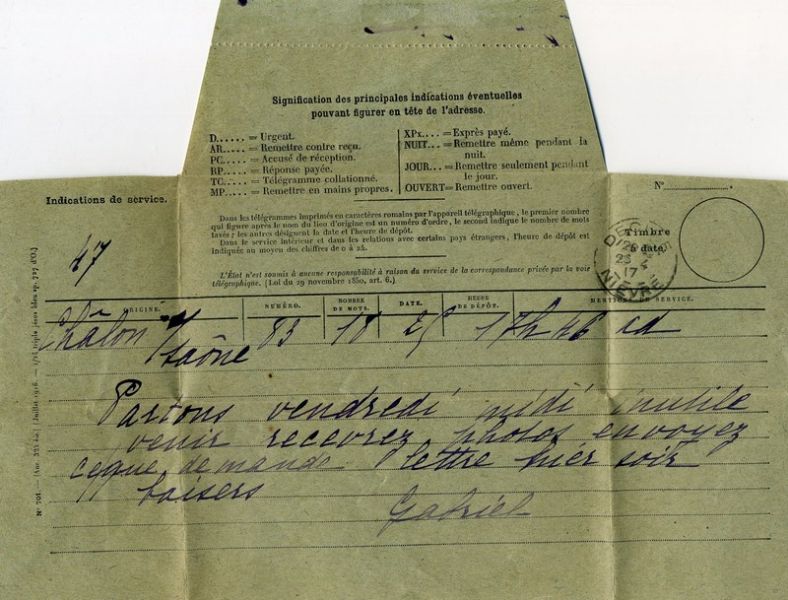 Signification des principales indications éventuelles
pouvant figurer en tête de l'adresse.
D..... = Urgent.
AR.... = Remettre contre reçu.
PC.... = Accusé de réception.
RP.... = Réponse payée.
TC.... = Télégramme collationné.
MP.... = Remettre en mains propres.
XPx.... = Exprès payé.
NUIT... = Remettre même pendant la
nuit.
JOUR... = Remettre seulement pendant
le jour.
OUVERT = Remettre ouvert.
Dans les télégrammes imprimés en caractères romains par l'appareil télégraphique, le premier nombre
qui figure après le nom du lieu d'origine est un numéro d'ordre, le second indique le nombre de mots
taxés; les autres désignent la date et l'heure de dépôt.
Dans le service intérieur et dans les relations avec certains pays étrangers, l'heure de dépôt est
indiquée au moyen des chiffres de 0 à 24.
L'État n'est soumis à aucune responsabilité à raison du service de la correspondance privée par la voie
télégraphique. (Loi du 29 novembre 1850, art. 6.)
Indications de service.
47
N° ........
Timbre
à date.
25 4
17
NIÈVRE
ORIGINE. NUMÉRO. NOMBRE DE MOTS. DATE. HEURE DE DÉPÔT. MENTIONS DE SERVICE.
Châlon s/ Saône 83 18 25 17h46
Partons vendredi midi inutile
venir recevrez photos envoyez
ceque demande lettre hier soir
baisers
Gabriel
N° 701.
Juillet 1916.